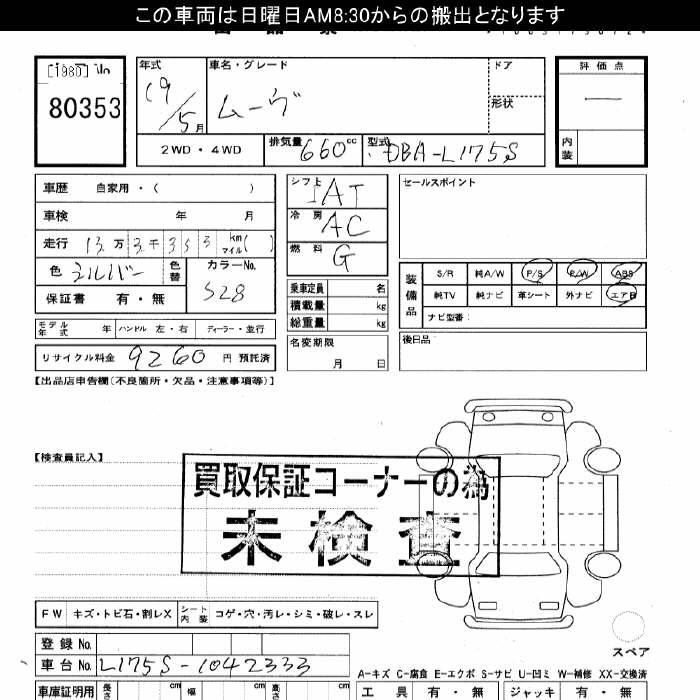 この車両は日曜日AM8:30からの搬出となります
[1980]
80353
年式 19/5月
車名・グレード ムーヴ
ドア
形状
評価点 —
内装
2WD・4WD
排気量 660cc
型式 DBA-L175S
車歴 自家用・( )
車検 年 月
走行 13万3千353km マイル( )
色 シルバー 色替
カラーNo. S28
保証書 有・無
モデル年式 年 ハンドル 左・右 ディーラー・並行
リサイクル料金 9260円 預託済
シフト IAT
冷房 AC
燃料 G
乗車定員 名
積載量 kg
総重量 kg
名変期限
月 日
セールスポイント
装備品 S/R 純A/W P/S P/W ABS
純TV 純ナビ 革シート 外ナビ エアB
ナビ型番:
後日品
【出品店申告欄(不良箇所・欠品・注意事項等)】
【検査員記入】
買取保証コーナーの為
未検査
FW キズ・トビ石・割レX シート内装 コゲ・穴・汚レ・シミ・破レ・スレ
スペア
登録No.
車台No. L175S-1042333
A-キズ C-腐食 E-エクボ S-サビ U-凹ミ W-補修 XX-交換済
車庫証明用 長さ cm 幅 cm 高さ cm
工具 有・無 ジャッキ 有・無